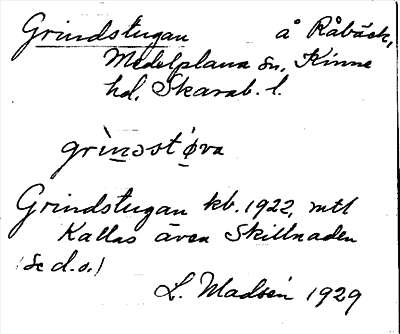 Grindstugan å Råbäck,
Medelplana sn, Kinne
hd, Skarab. l.
grìnəst ø̀va
Grindstugan kb. 1922, mtl
Kallas även Skillnaden
(Se d.o.)
L. Madsén 1929